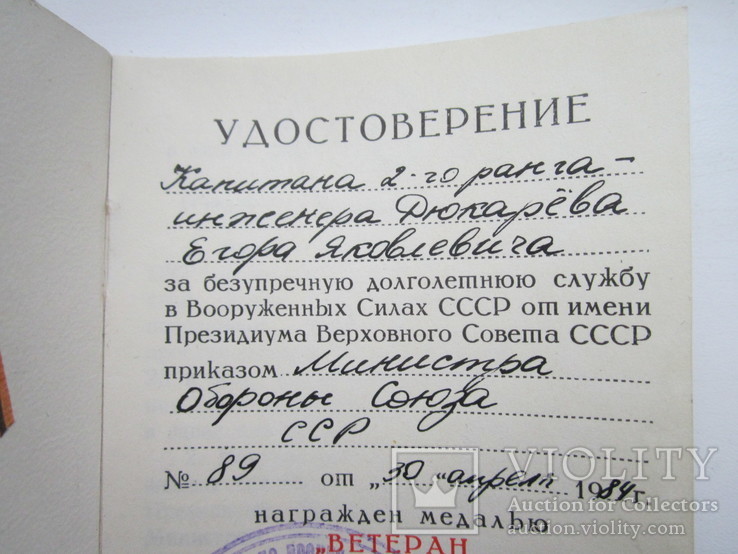 УДОСТОВЕРЕНИЕ
Капитана 2-го ранга-
инженера Дюкарёва
Егора Яковлевича
за безупречную долголетнюю службу
в Вооруженных Силах СССР от имени
Президиума Верховного Совета СССР
приказом Министра
Обороны Союза
ССР
№ 89 от „30" апреля 1984 г.
награжден медалью
„ВЕТЕРАН
VIOLITY
Auction for Collectors
auction.violity.com